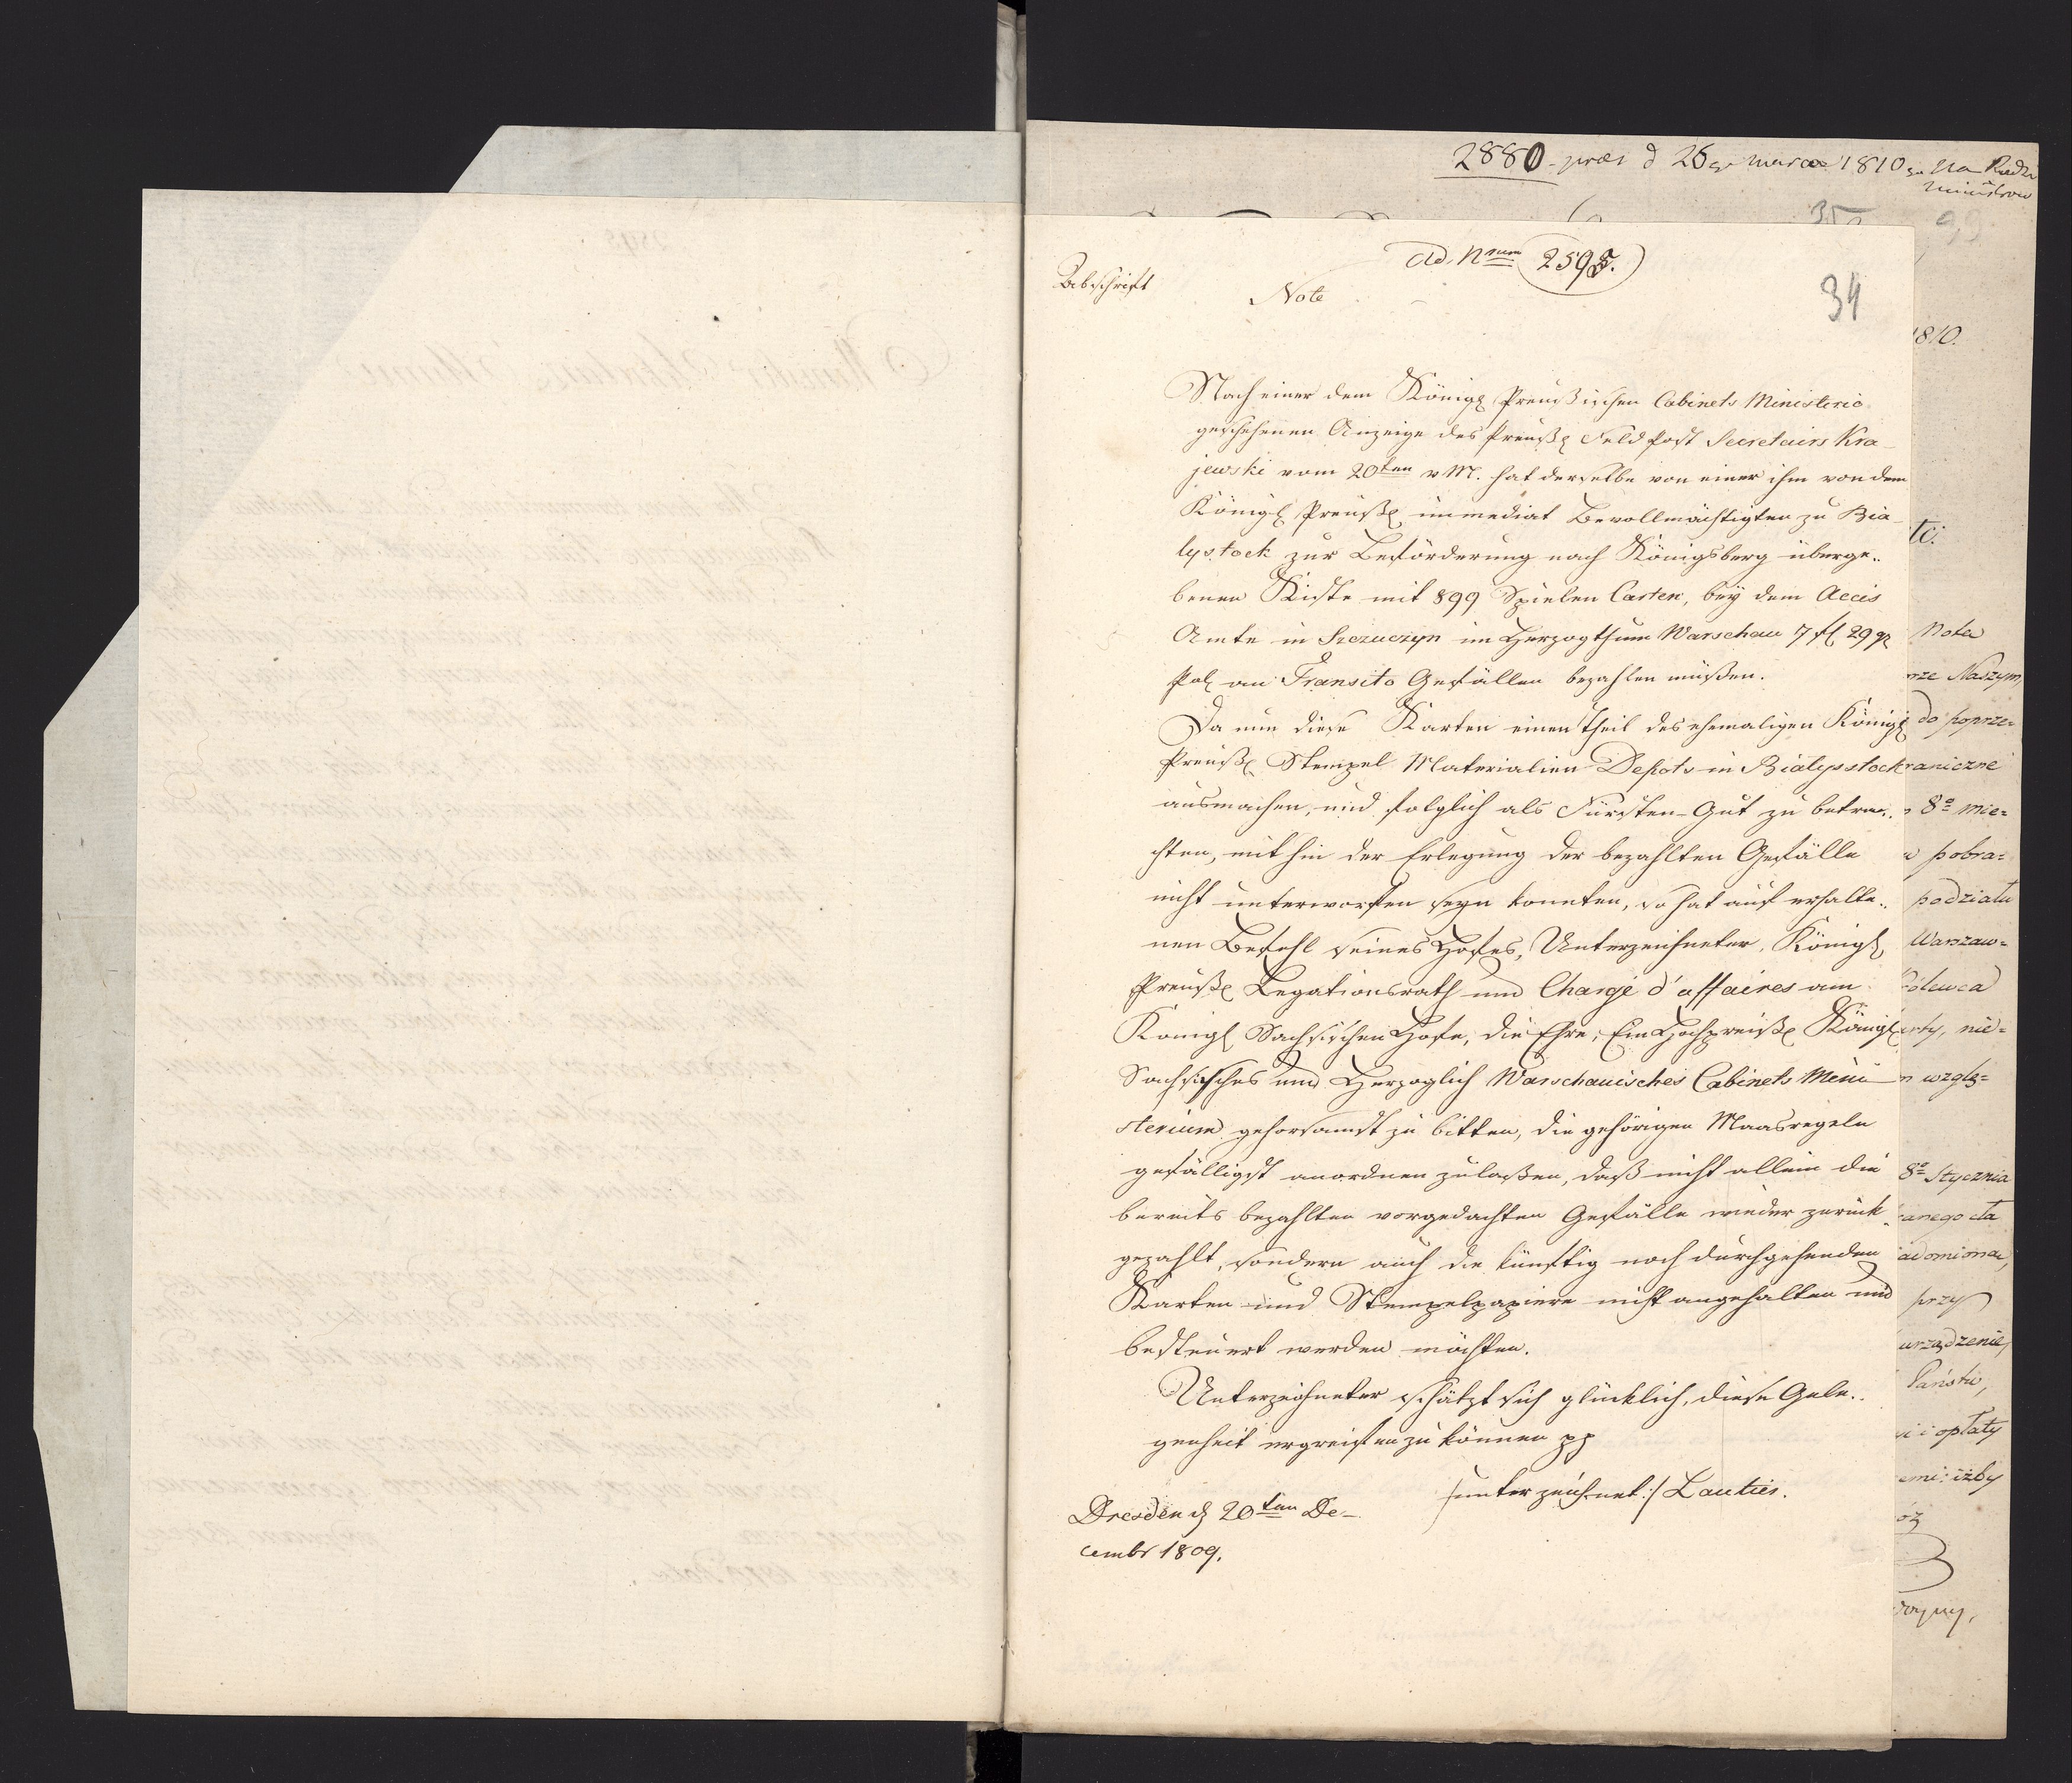 2880 præs d 26 go marca 1810 go Na Radzie
Ministrow
35
99
ad Nrum 2595.
Abschrift
Note
34
Nach einer dem Königl Preußischen Cabinets Ministerio
geschehenen Anzeige des Preuß Feld Post Secretairs Kra-
jewski vom 20ten v M. hat derselbe von einer ihm von dem
Königl Preuß immediat Bevollmächtigten zu Bia-
lystock zur Beförderung nach Königsberg überge-
benen Kiste mit 899 Spielen Carten, bey dem Accis
Amte in Szczuczyn im Herzogthum Warschau 7 fl 29 gr
Pol an Transito Gefällen bezahlen müßen.
Da nun diese Karten einen Theil des ehemaligen Königl
Preuß Stempel Materialien Depots in Bialysstock
ausmachen, und folglich als Fürsten-Gut zu betra-
chten, mithin der Erlegung der bezahlten Gefälle
nicht unterworfen seyn konnten, so hat auf erhalte-
nen Befehl seines Hofes, Unterzeichneter, Königl
Preuß Legationsrath und Chargé d'affaires am
Königl Sachsischen Hofe, die Ehre, Ein Hochpreißl Königl
Sachsisches und Herzoglich Warschauisches Cabinets Mini-
sterium gehorsamst zu bitten, die gehörigen Maasregeln
gefälligst anordnen zulaßen, daß nicht allein die
bereits bezahlten vorgedachten Gefälle wieder zurück
gezahlt, sondern auch die künftig noch durchgehenden
Karten und Stempelpapiere nicht angehalten und
besteuert werden möchten.
Unterzeichneter schätzt sich glücklich, diese Gele-
genheit ergreifen zu können pp
/unterzeichnet:/ Lautier.
Dresden d 20ten De-
cembr 1809.
1810.
tci.
Nota
nze Naszym,
do poprze=
raniczne
8o mie=
pobra=
podziału
Warszaw=
ólewca
rty, nie=
wzglę=
8o Stycznia
anego cła
adomiona,
przy
urządzenie,
Państw,
i opłaty
emi: iżby